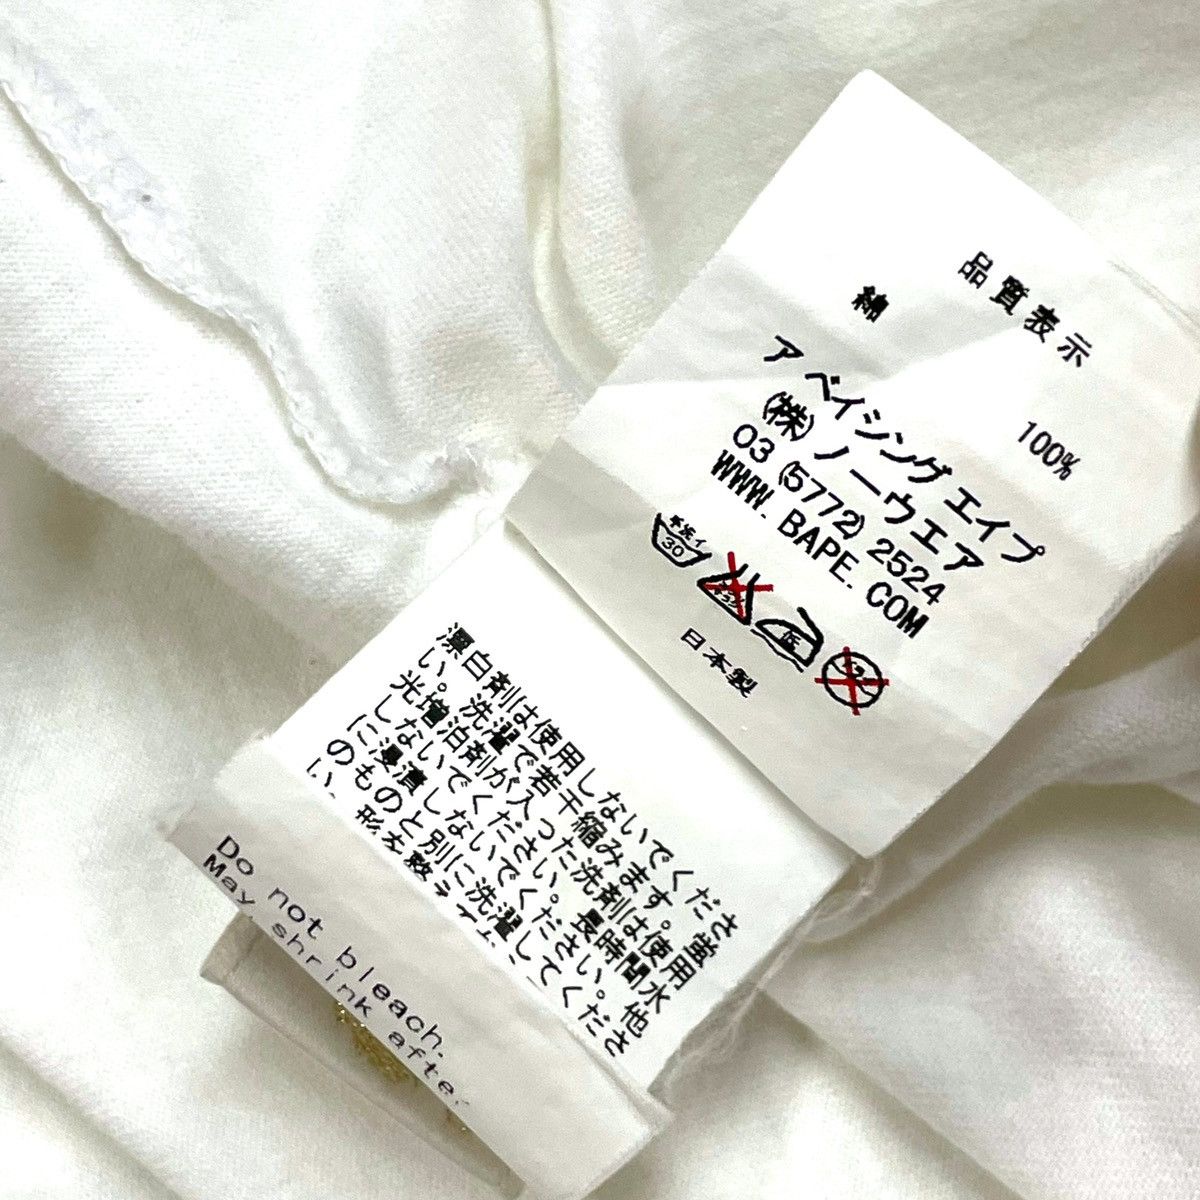 品質表示
綿 100%
ア ベイシング エイプ
(株) ノーウエア
03 (5772) 2524
WWW. BAPE. COM
手洗イ
30
低
日本製
漂白剤は使用しないでくださ
い。洗濯で若干縮みます。蛍
光増泊剤が入った洗剤は使用
しないでください。長時間水
に浸漬しないでください。他
のものと別に洗濯してくださ
い。形を整え
Do not bleach.
May shrink after